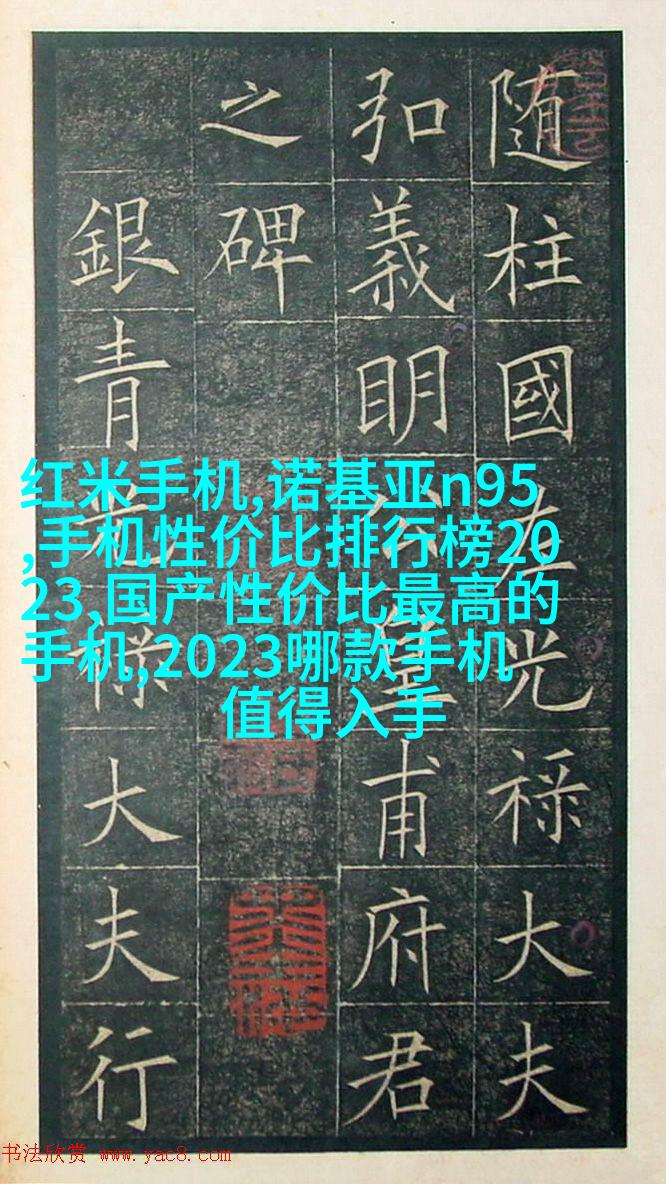 随柱國左光禄大夫
弘義明公皇甫府君
之碑
銀青光禄大夫行
红米手机,诺基亚n95
,手机性价比排行榜20
23,国产性价比最高的
手机,2023哪款手机
值得入手
书法欣赏 www.yac8.com